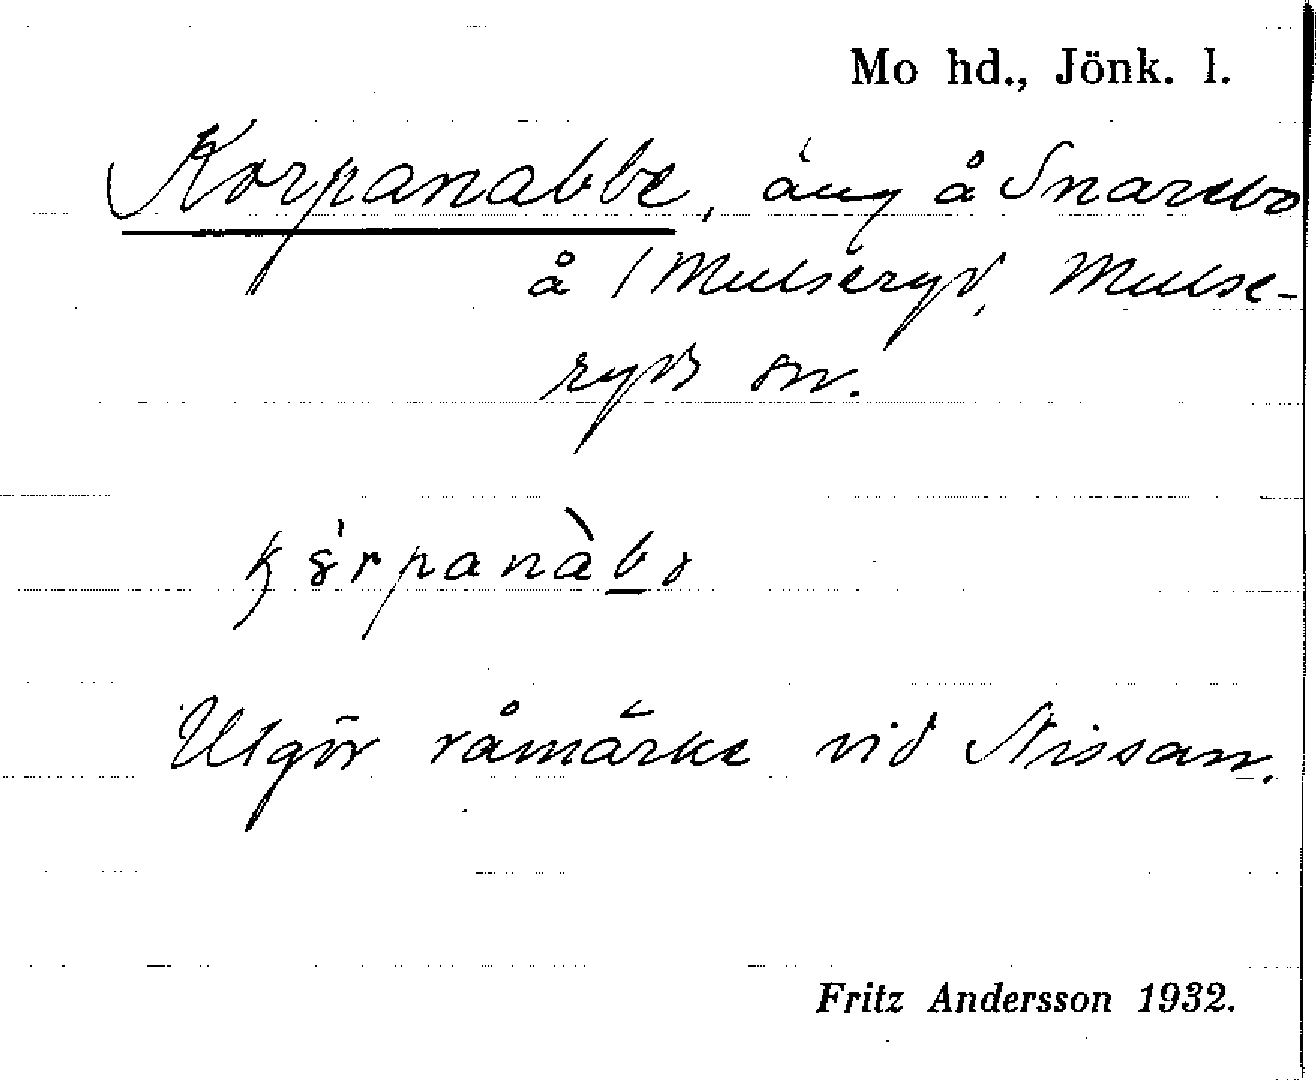 Mo hd., Jönk. l.
Korpanabbe, äng å Snarebo
å / Mulseryd, Mulse-
ryds sn.
Utgör råmärke vid Nissan.
Fritz Andersson 1932.